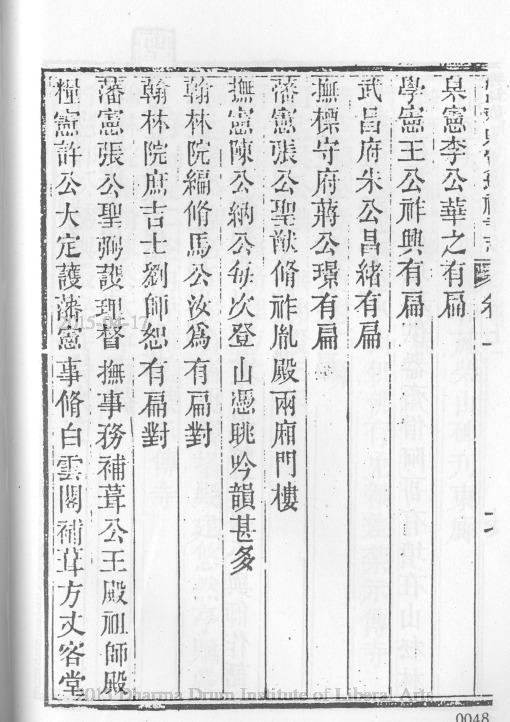 臬憲李公華之有扁
學憲王公祚興有扁
武昌府朱公昌緒有扁
撫標守府蔣公璟有扁
藩憲張公聖猷脩祚胤殿兩廂門樓
撫憲陳公納公每次登山憑眺吟韻甚多
翰林院編脩馬公汝為有扁對
翰林院庶吉士劉師恕有扁對
藩憲張公聖弼護理督撫事務補葺公王殿祖師殿
糧憲許公大定護藩憲事脩白雲閣補葺方丈客堂
Dharma Drum Institute of Liberal Arts
0048